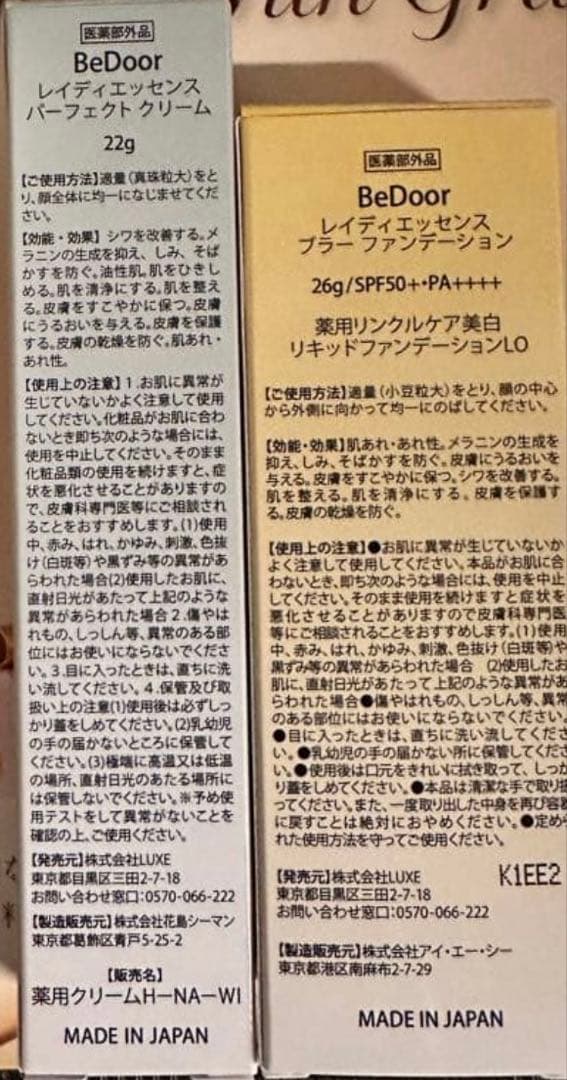 医薬部外品
BeDoor
レイディエッセンス
パーフェクト クリーム
22g
【ご使用方法】適量(真珠粒大)をと
り、顔全体に均一になじませてくだ
さい。
【効能・効果】シワを改善する。メ
ラニンの生成を抑え、しみ、そば
かすを防ぐ。油性肌。肌をひきし
める。肌を清浄にする。肌を整え
る。皮膚をすこやかに保つ。皮膚
にうるおいを与える。皮膚を保護
する。皮膚の乾燥を防ぐ。肌あれ・
あれ性。
【使用上の注意】1.お肌に異常が
生じていないかよく注意して使用
してください。化粧品がお肌に合わ
ないとき即ち次のような場合には、
使用を中止してください。そのまま
化粧品類の使用を続けますと、症
状を悪化させることがありますの
で、皮膚科専門医等にご相談され
ることをおすすめします。(1)使用
中、赤み、はれ、かゆみ、刺激、色抜
け(白斑等)や黒ずみ等の異常があ
らわれた場合(2)使用したお肌に、
直射日光があたって上記のような
異常があらわれた場合2.傷やは
れもの、しっしん等、異常のある部
位にはお使いにならないでくださ
い。3.目に入ったときは、直ちに洗
い流してください。4.保管及び取
扱い上の注意(1)使用後は必ずしっ
かり蓋をしめてください。(2)乳幼児
の手の届かないところに保管して
ください。(3)極端に高温又は低温
の場所、直射日光のあたる場所に
は保管しないでください。※予め使
用テストをして異常がないことを
確認の上、ご使用ください。
【発売元】株式会社LUXE
東京都目黒区三田2-7-18
お問い合わせ窓口:0570-066-222
【製造販売元】株式会社花島シーマン
東京都葛飾区青戸5-25-2
【販売名】
薬用クリームH-NA-WI
MADE IN JAPAN
医薬部外品
BeDoor
レイディエッセンス
ブラー ファンデーション
26g/SPF50+・PA++++
薬用リンクルケア美白
リキッドファンデーションLO
【ご使用方法】適量(小豆粒大)をとり、顔の中心
から外側に向かって均一にのばしてください。
【効能・効果】肌あれ・あれ性。メラニンの生成を
抑え、しみ、そばかすを防ぐ。皮膚にうるおいを
与える。皮膚をすこやかに保つ。シワを改善する。
肌を整える。肌を清浄にする。皮膚を保護す
る。皮膚の乾燥を防ぐ。
【使用上の注意】●お肌に異常が生じていないか
よく注意して使用してください。本品がお肌に合
わないとき、即ち次のような場合には、使用を中止
してください。そのまま使用を続けますと症状を
悪化させることがありますので皮膚科専門医
等にご相談されることをおすすめします。(1)使用
中、赤み、はれ、かゆみ、刺激、色抜け(白斑等)や
黒ずみ等の異常があらわれた場合 (2)使用したお
肌に、直射日光があたって上記のような異常があ
らわれた場合●傷やはれもの、しっしん等、異常
のある部位にはお使いにならないでください。
●目に入ったときは、直ちに洗い流してくださ
い。●乳幼児の手の届かない所に保管してくださ
い。●使用後は口元をきれいに拭き取って、しっか
り蓋をしめてください。●本品は清潔な手で取り扱
ってください。また、一度取り出した中身を再び容器
に戻すことは絶対におやめください。●定めら
れた使用方法を守ってご使用ください。
【発売元】株式会社LUXE
東京都目黒区三田2-7-18
お問い合わせ窓口:0570-066-222
K1EE2
【製造販売元】株式会社アイ・エー・シー
東京都港区南麻布2-7-29
MADE IN JAPAN